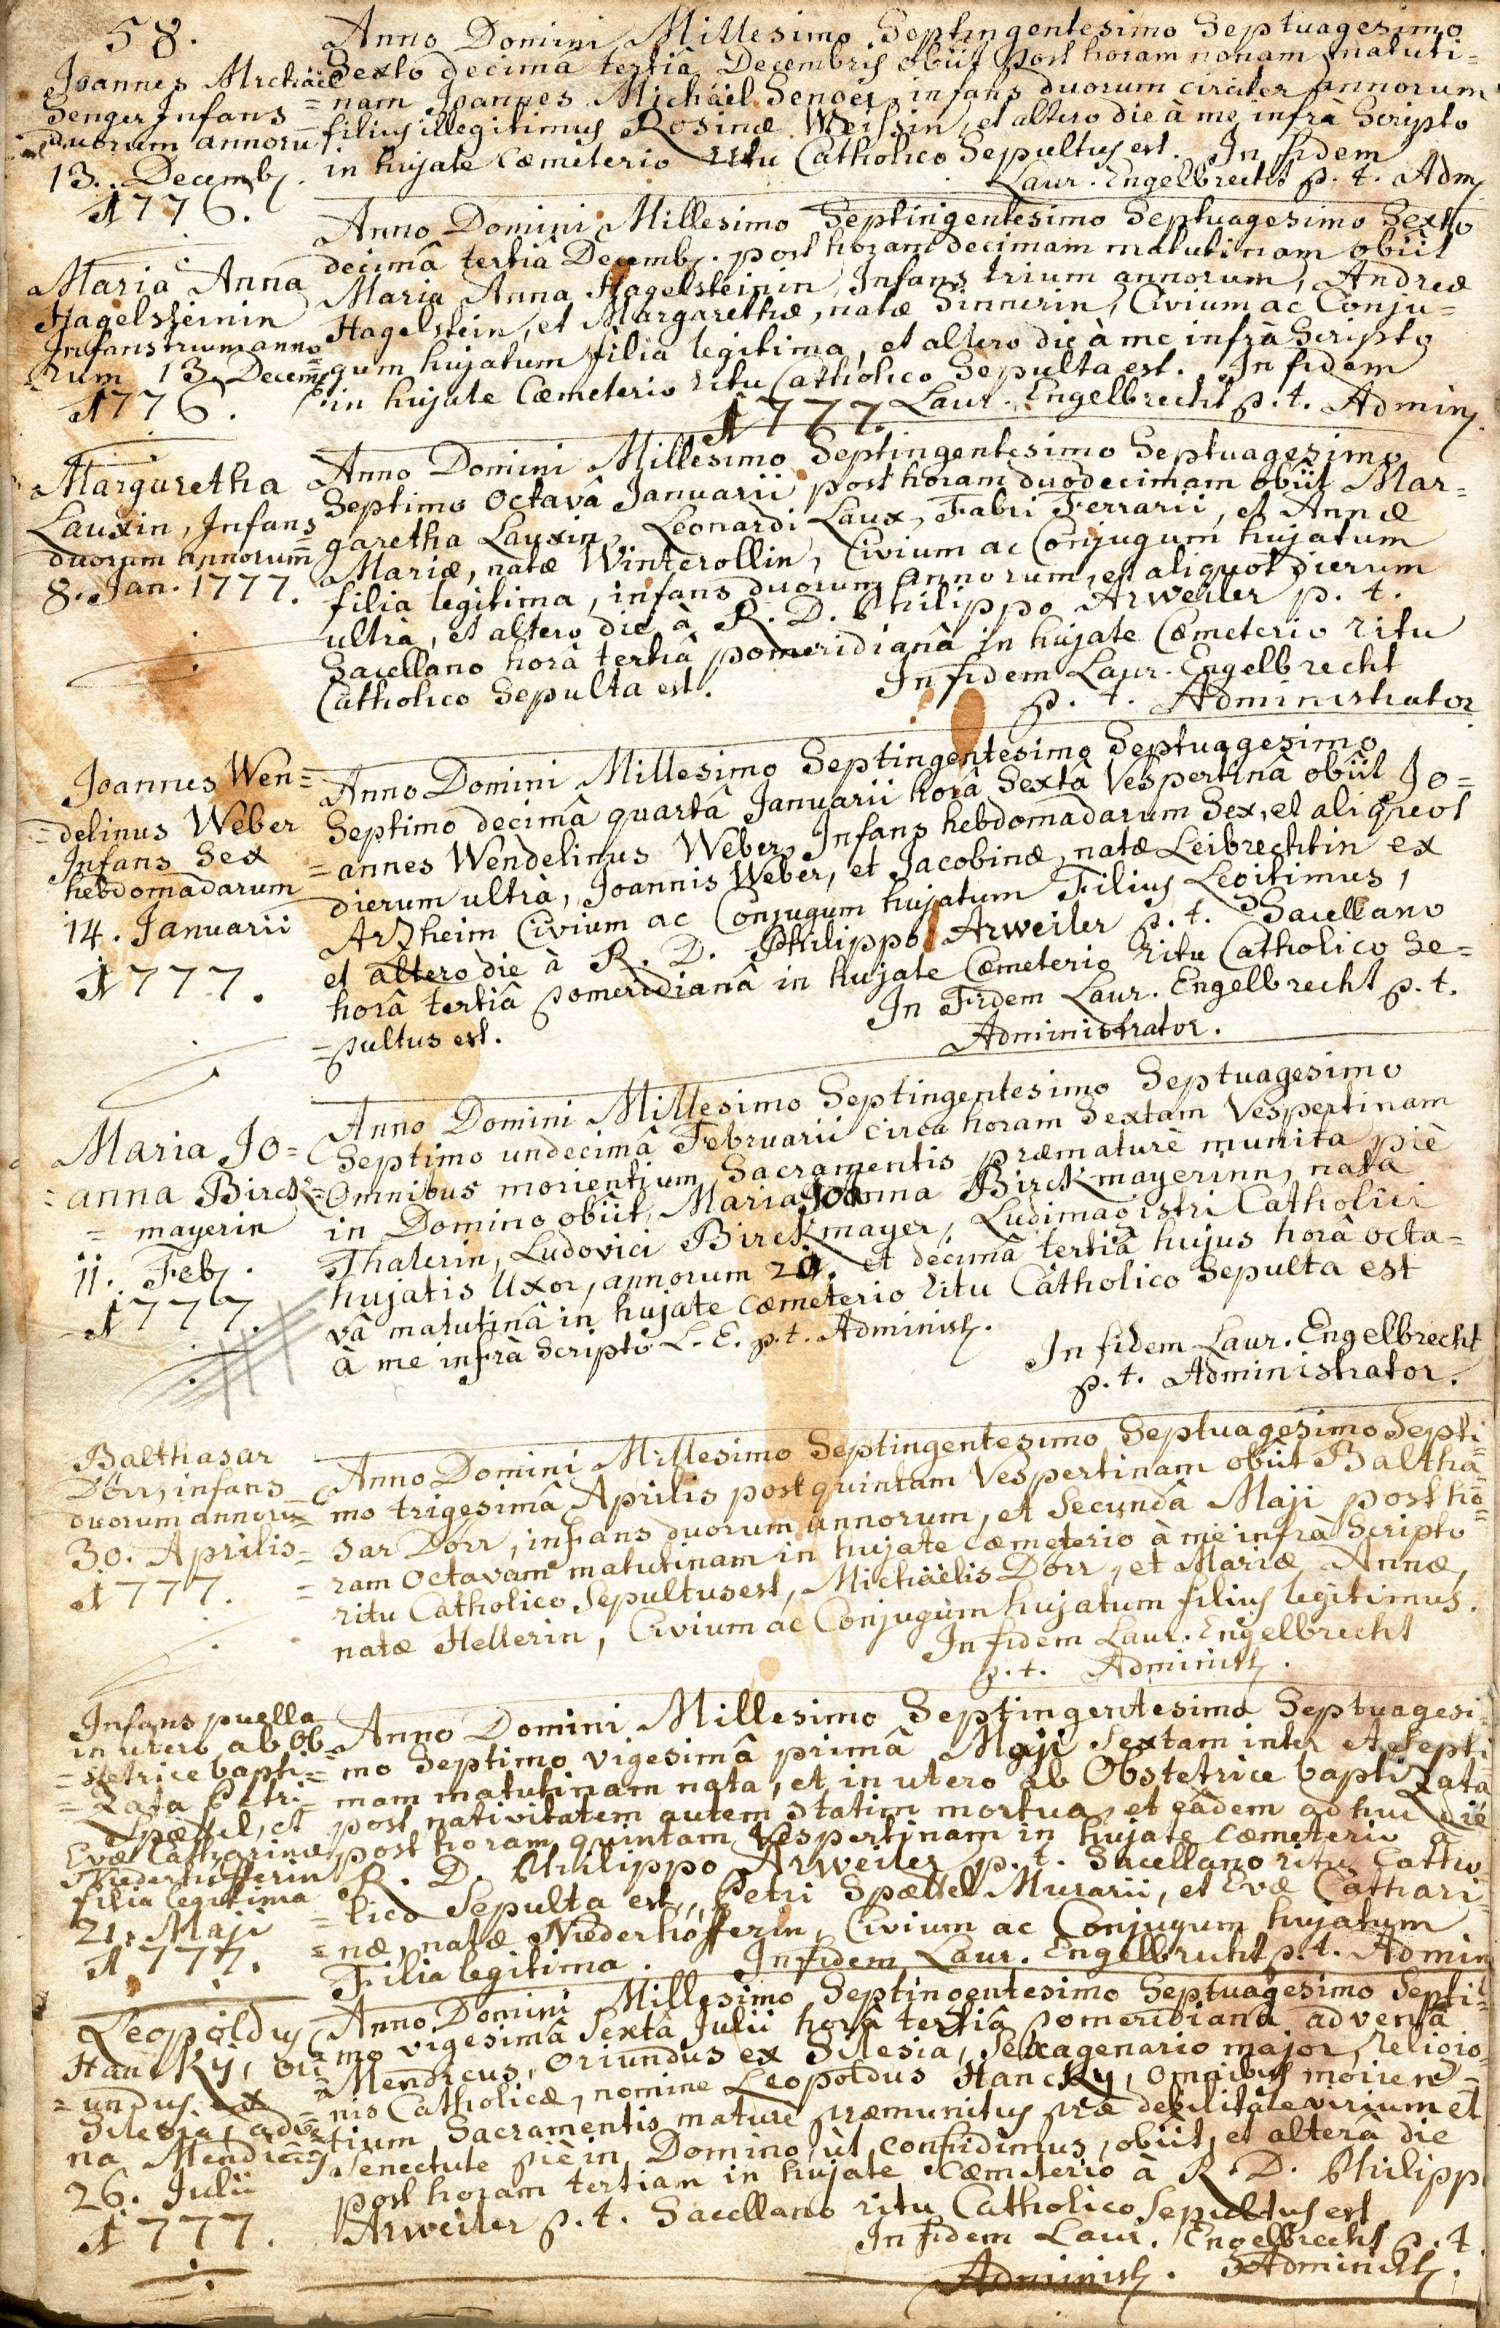 58.
Joannes Michäel
Senger Infans
duorum annoru
13. Decemb.
1776.
Anno Domini Millesimo Septingentesimo Septuagesimo
Sexto decima tertiâ Decembris obiit post horam nonam matuti=
=nam Joannes Michäel Senger, infans duorum circiter annorum
filius illegitimus Rosinæ Weissin, et altero die à me infrà Scripto
in hujate cæmeterio ritu Catholico Sepultus est. In fidem
Laur. Engelbrecht p. t. Adm.
Maria Anna
Hagelsteinin
Infans trium anno=
=rum 13 Decemb
1776.
Anno Domini Millesimo Septingentesimo Septuagesimo Sexto
decimâ tertiâ Decemb. post horam decimam matutinam obiit
Maria Anna Hagelsteinin, Infans trium annorum, Andreæ
Hagelstein, et Margarethæ, natæ Sinnerin, Civium ac Conju=
gum hujatum filia legitima, et altero die à me infrà Scripto
in hujate Cæmeterio ritu Catholico Sepulta est. In fidem
Laur. Engelbrecht p. t. Admin.
1777.
Margaretha
Lauxin, Infans
duorum annorum
8. Jan. 1777.
Anno Domini Millesimo Septingentesimo Septuagesimo
Septimo Octavâ Januarii post horam duodecimam obiit Mar=
garetha Lauxin, Leonardi Laux, Fabri Ferrarii, et Annæ
Mariæ, natæ Winterollin, Civium ac Conjugum hujatum
filia legitima, infans duorum annorum, et aliquot dierum
ultrà, et altero die à R. D. Philippo Arweiler p. t.
Sacellano horâ tertiâ pomeridianâ in hujate Cæmeterio ritu
Catholico Sepulta est. In fidem Laur. Engelbrecht
p. t. Administrator
Joannes Wen=
=delinus Weber
Infans Sex
hebdomadarum
14. Januarii
1777.
Anno Domini Millesimo Septingentesimo Septuagesimo
Septimo decimâ quartâ Januarii horâ Sextâ Vespertinâ obiit Jo=
=annes Wendelinus Weber, Infans hebdomadarum Sex, et aliquot
dierum ultrà, Joannis Weber, et Jacobinæ, natæ Leibrechtin ex
Arzheim Civium ac Conjugum hujatum Filius Legitimus,
et altero die à R. D. Philippo Arweiler p. t. Sacellano
horâ tertiâ pomeridianâ in hujate Cæmeterio ritu Catholico Se=
=pultus est. In Fidem Laur. Engelbrecht p. t.
Administrator.
Maria Jo=
=anna Birck=
=mayerin
11. Feb.
1777.
Anno Domini Millesimo Septingentesimo Septuagesimo
Septimo undecimâ Februarii circa horam Sextam Vespertinam
Omnibus morientium Sacramentis præmature munita piè
in Domino obiit Maria Joanna Birckmayerinn, nata
Thalerin, Ludovici Birckmayer, Ludimagistri Catholici
hujatis Uxor, annorum et decimâ tertiâ hujus horâ octa=
vâ matutinâ in hujate cæmeterio ritu Catholico Sepulta est
à me infrà Scripto L. E. p. t. Administ.
In fidem Laur. Engelbrecht
p. t. Administrator.
Balthasar
Dörr, infans
duorum annoru=
30. Aprilis
1777.
Anno Domini Millesimo Septingentesimo Septuagesimo Septi=
mo trigesimâ Aprilis post quintam Vespertinam obiit Baltha=
sar Dörr, infans duorum annorum, et Secundâ Maji post ho=
=ram Octavam matutinam in hujate cæmeterio à me infrà Scripto
ritu Catholico Sepultus est, Michäelis Dörr, et Mariæ Annæ,
natæ Hellerin, Civium ac Conjugum hujatum filius legitimus.
In fidem Laur. Engelbrecht
p. t. Administ.
Infans puella
in utero ab Ob=
=stetrice bapti=
=zata Petri
Spættel, et
Evæ Catharinæ
Niederhöfferin
filia legitima
21. Maji
1777.
Anno Domini Millesimo Septingentesimo Septuagesi=
mo Septimo vigesimâ primâ Maji Sextam inter et Septi=
mam matutinam nata, et in utero ab Obstetrice baptizata
post nativitatem autem statim mortua, et eâdem adhuc die
post horam quintam Vespertinam in hujate cæmeterio à
R. D. Philippo Arweiler p. t. Sacellano ritu Catho=
=lico Sepulta est, Petri Spættel Murarii, et Evæ Cathari=
=næ, natæ Niederhöfferin, Civium ac Conjugum hujatum
Filia legitima. In fidem Laur. Engelbrecht p. t. Admin
Leopoldus
Hancky, ori=
=undus ex
Silesia, adve=
na Mendicus
26. Julii
1777.
Anno Domini Millesimo Septingentesimo Septuagesimo Septi=
=mo vigesimâ Sextâ Julii horâ tertiâ pomeridianâ advena
Mendicus, Oriundus ex Silesia, Sexagenario major, Religio=
nis Catholicæ, nomine Leopoldus Hancky, omnibus morien=
=tium Sacramentis mature præmunitus præ debilitate virium et
Senectute piè in Domino, ùt confidimus, obiit, et alterâ die
post horam tertiam in hujate Cæmeterio à R. D. Philippo
Arweiler p. t. Sacellano ritu Catholico Sepultus est
In fidem Laur. Engelbrecht p. t.
Administ. Administ.